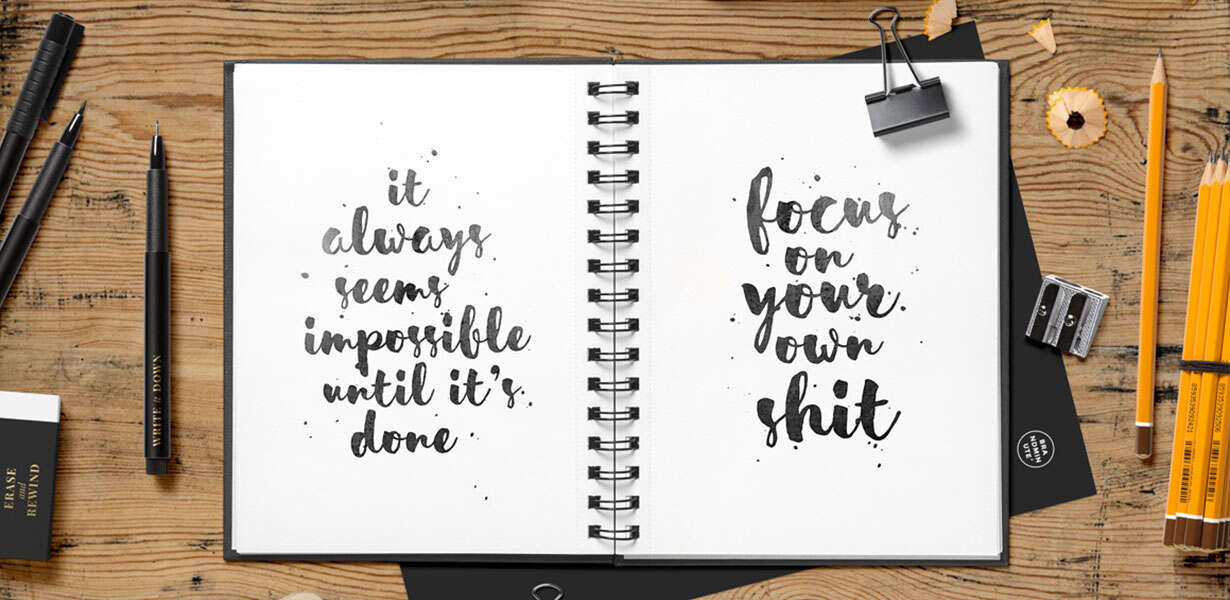 it
always
seems
impossible
until it's
done
focus
on
your
own
shit
WRITE & DOWN
ERASE
and
REWIND
BRA
NDMIN
UTE